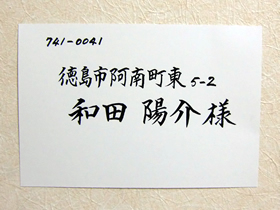 741-0041
徳島市阿南町東5-2
和田 陽介様